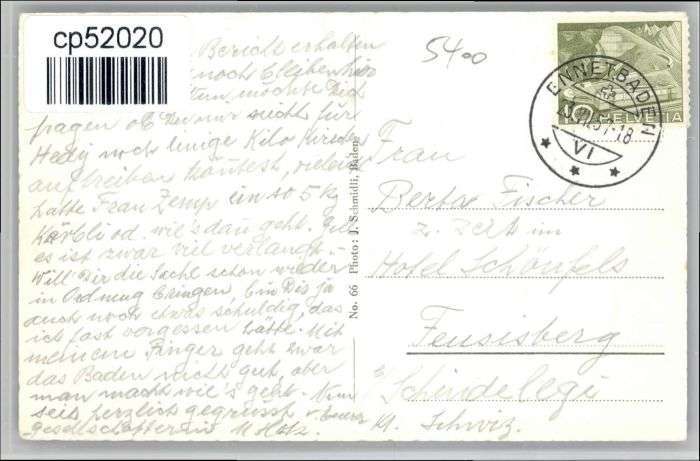 cp52020
Bericht erhalten
noch bleiben
möchte Dich
fragen ob Du mir nicht für
Hedy noch einige Kilo
auftreiben könntest, vielleicht
hätte Frau Zemp ein so 5 kg
Körbli od. wie's dan geht.
es ist zwar viel verlangt.-
Will Dir die Sache schon wieder
in Ordnung bringen, bin Dir ja
auch noch etwas schuldig, das
ich fast vergessen hätte. Mit
meinem Finger geht zwar
das Baden nicht gut, aber
man macht wie's geht. Nun
seit herzlich gegrüsst v. Eurer
Gesellschafterin M.
No. 66 Photo: J. Schmidli, Baden
5400
ENNETBADEN
VI
10 HELVETIA
Frau
Berta Fischer
z. Zeit im
Hotel Schönfels
Feusisberg
b/ Schindelegi
Kt. Schwiz.